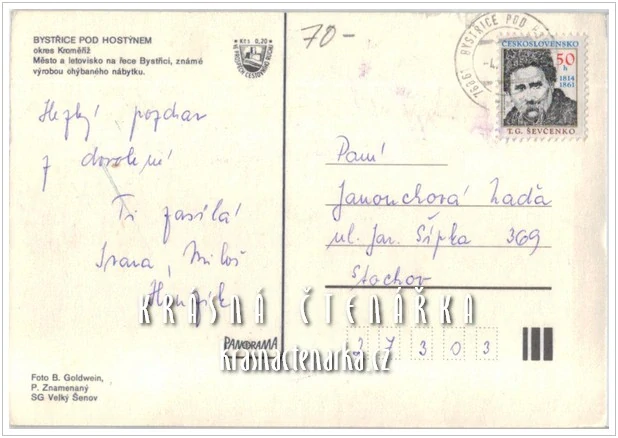 BYSTŘICE POD HOSTÝNEM
okres Kroměříž
Město a letovisko na řece Bystřici, známé
výrobou ohýbaného nábytku.
Kčs 0,20
70-
BYSTŘICE POD
ČESKOSLOVENSKO
50
h
1814
1861
T. G. ŠEVČENKO
Hezký pozdrav
z dovolené
Ti zasílá
Ivana, Miloš
Paní
Janouchová Laďa
ul. Jar. Šípka 369
Stochov
27303
KRÁSNÁ ČTENÁŘKA
krasnactenarka.cz
PANORAMA
Foto B. Goldwein,
P. Znamenaný
SG Velký Šenov